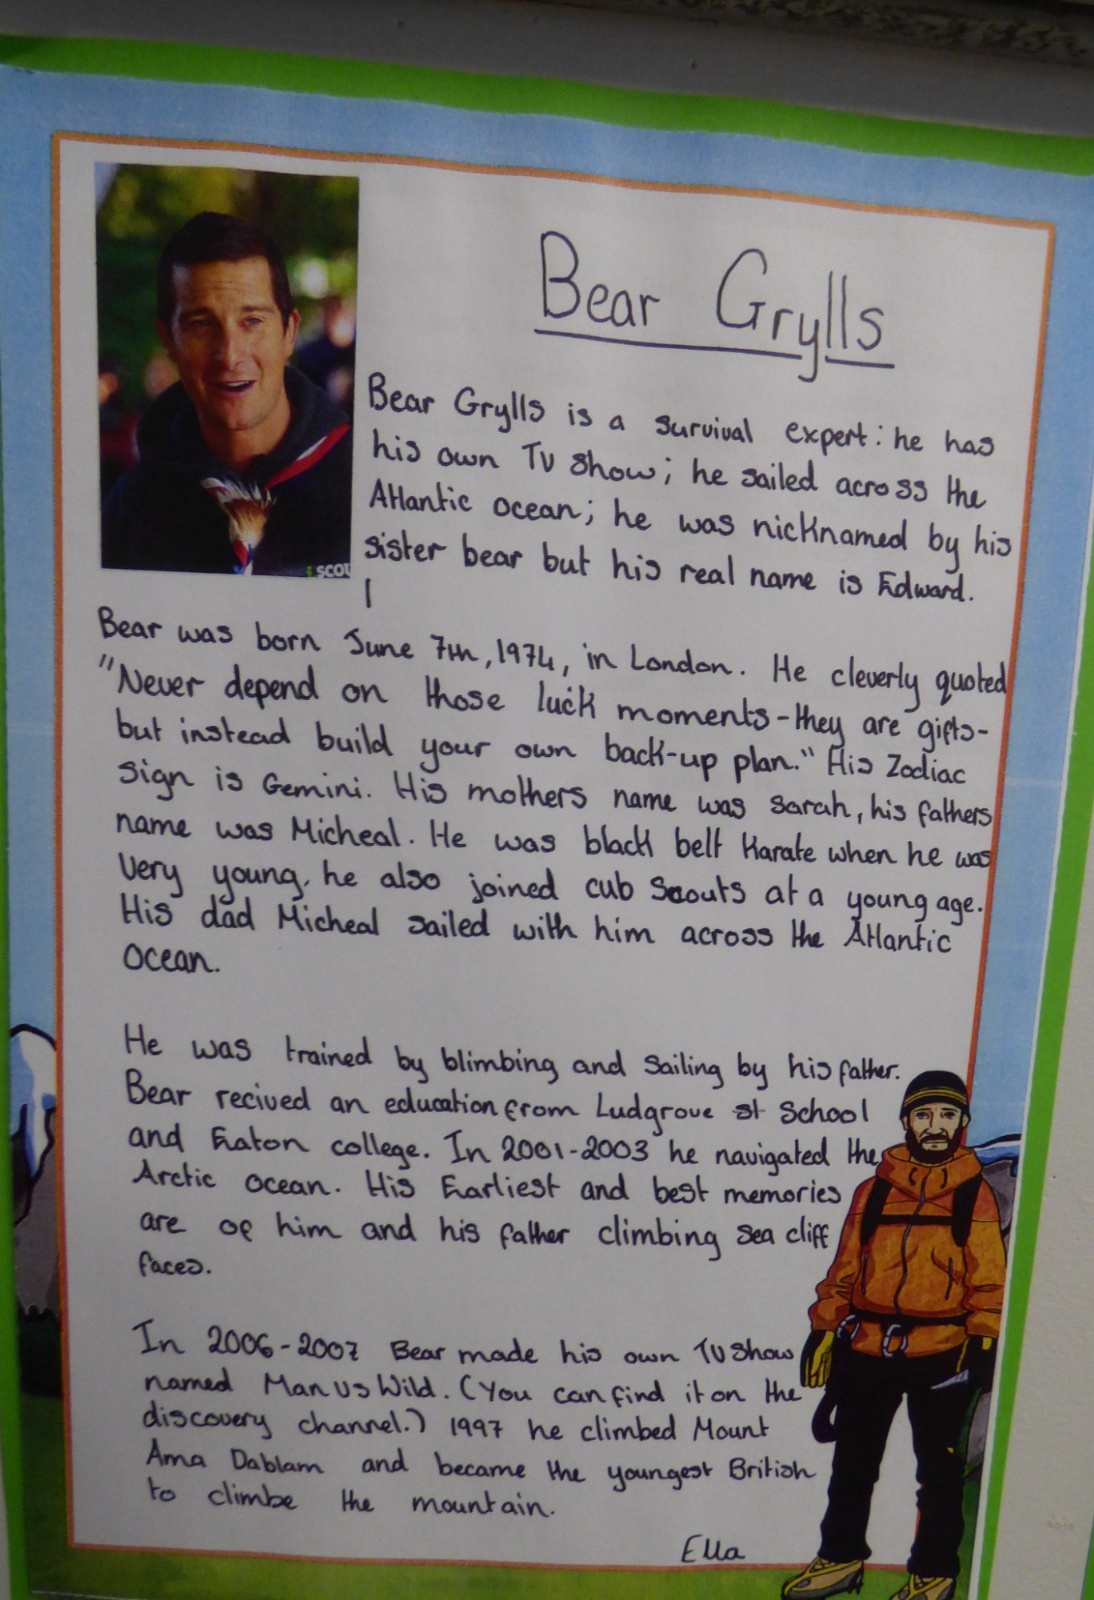 Bear Grylls
Bear Grylls is a survival expert: he has
his own TV show; he sailed across the
Atlantic ocean; he was nicknamed by his
sister bear but his real name is Edward.
SCOU
Bear was born June 7th, 1974, in London. He cleverly quoted
"Never depend on those luck moments - they are gifts -
but instead build your own back-up plan." His Zodiac
sign is Gemini. His mothers name was Sarah, his fathers
name was Micheal. He was black belt Karate when he was
very young, he also joined cub Scouts at a young age.
His dad Micheal sailed with him across the Atlantic
Ocean.
He was trained by blimbing and sailing by his father.
Bear recived an education from Ludgrove st School
and Eaton college. In 2001-2003 he navigated the
Arctic ocean. His Earliest and best memories
are of him and his father climbing sea cliff
faces.
In 2006-2007 Bear made his own TV show
named Man vs Wild. (You can find it on the
discovery channel.) 1997 he climbed Mount
Ama Dablam and became the youngest British
to climbe the mountain.
Ella